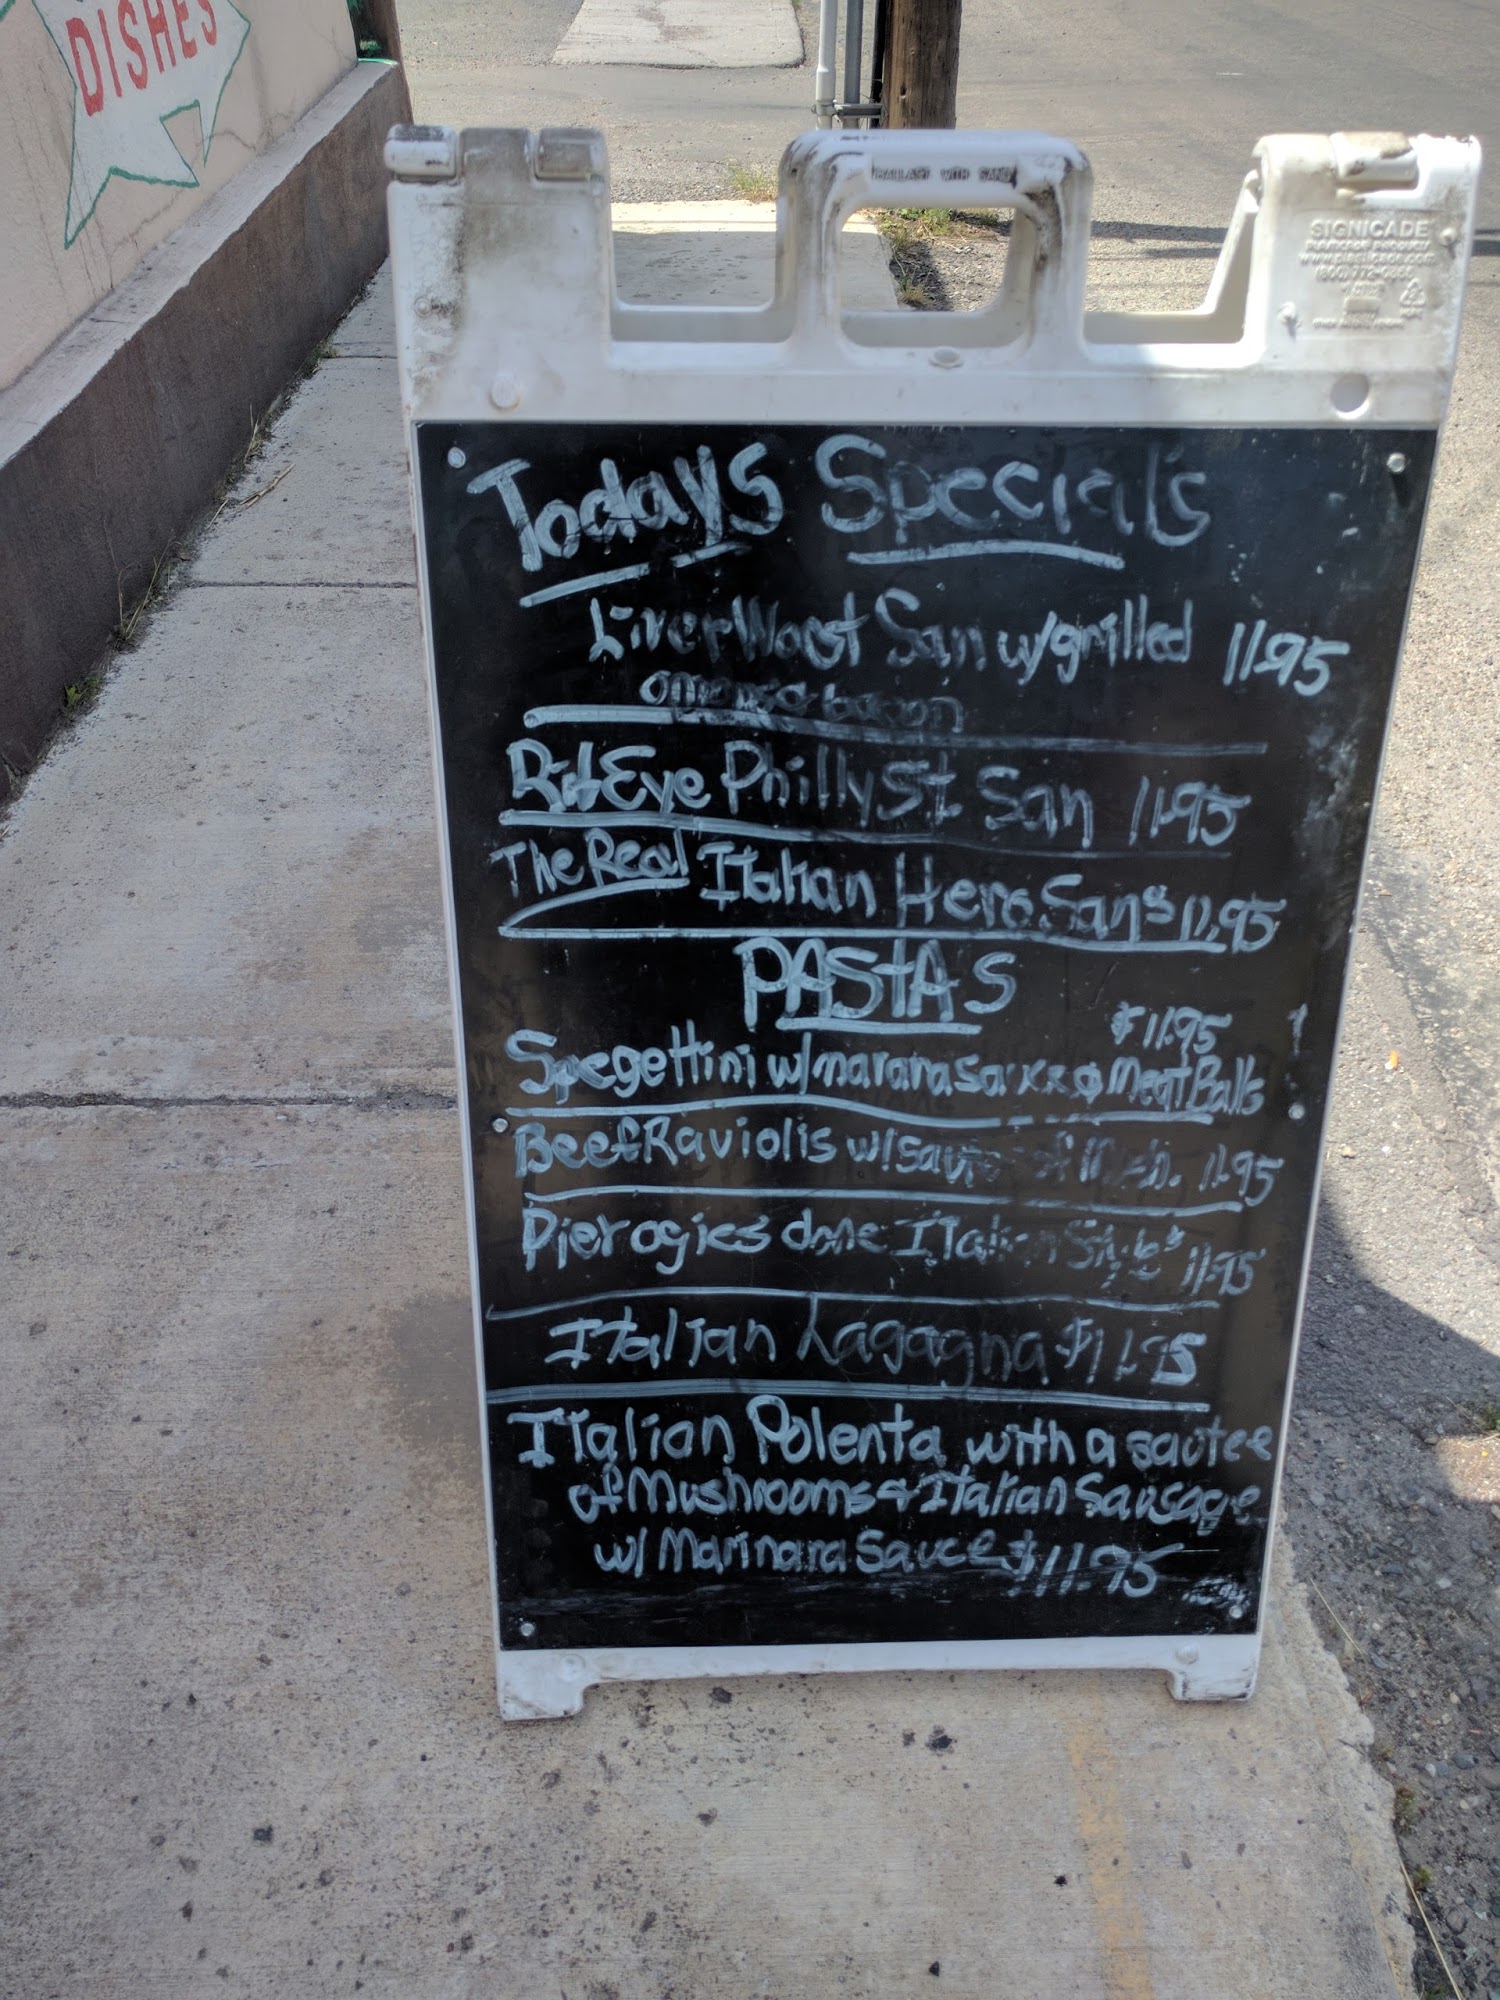 DISHES
BALLAST WITH SAND
SIGNICADE
Todays Specials
LiverWorst San w/grilled 11.95
onions & bacon
RibEye Philly St San 11.95
The Real Italian Hero San $11.95
PASTAS
$11.95
Spegettini w/ & MeatBalls
BeefRaviolis w/ saute of Mush. 11.95
Pierogies done Italian Style $11.95
Italian Lagagna $11.95
Italian Polenta with a sautee
of Mushrooms & Italian Sausage
w/ Marinara Sauce $11.95